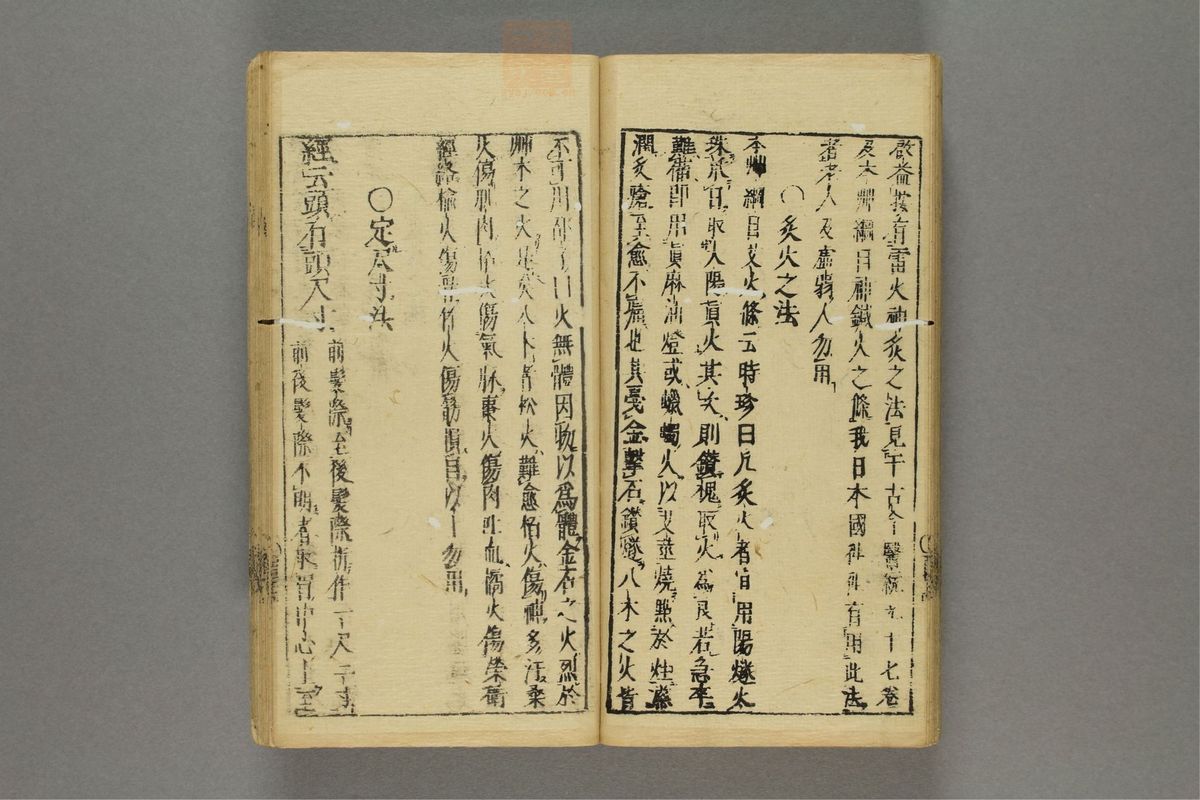 啟益按有雷火神灸之法見于古今醫統九十七卷
及本艸綱目神鍼火之條我日本國有用此法
者老人及虛弱人勿用
○灸火之法
本艸綱目艾火條云時珍曰凡灸火者宜用陽燧火
珠承日取太陽眞火其次則鑽槐取火爲良若急卒
難備即用眞麻油燈或蠟燭火以艾莖燒點於炷滋
潤灸瘡至愈不痛也其戛金擊石鑽燧八木之火皆
不可用邵子曰火無體因物以爲體金石之火烈於
艸木之火是矣八木者松火難愈柏火傷神多汗桑
火傷肌肉柘火傷氣脉棗火傷肉吐血橘火傷榮衛
經絡榆火傷骨竹火傷筋損目以上勿用
○定尺寸法
經云頭有頭尺寸
前髮際至後髮際折作一尺二寸
前後髮際不明者取眉中心上至